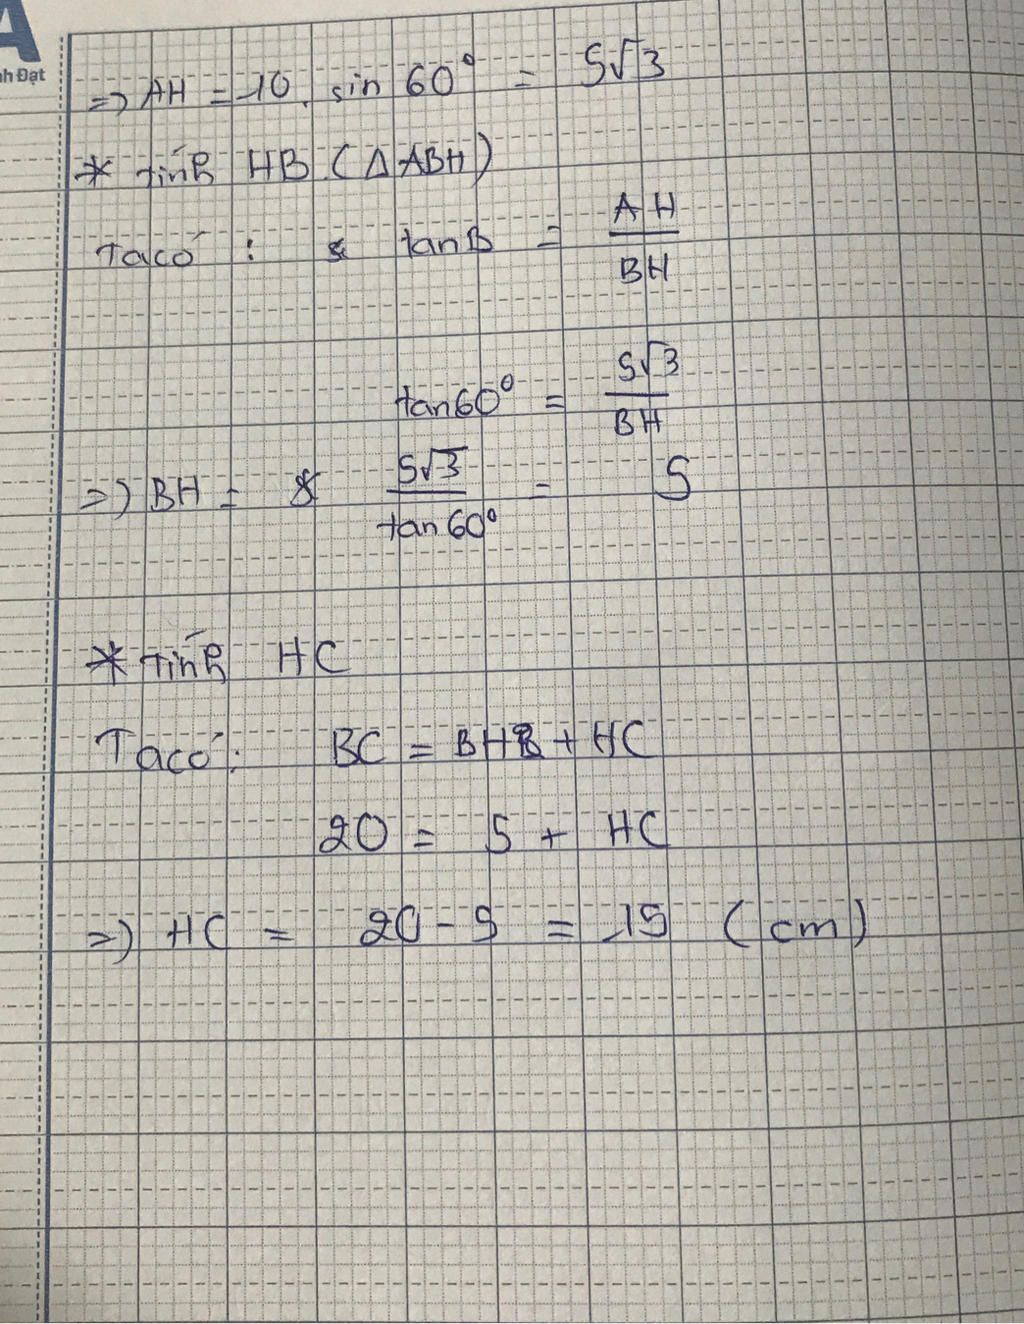 A
nh Đạt
=> AH = 10. sin 60° = 5√3
* tính HB (Δ ABH)
Ta có : tan B = AH / BH
tan 60° = 5√3 / BH
=> BH = 5√3 / tan 60° = 5
* tính HC
Ta có : BC = BH + HC
20 = 5 + HC
=> HC = 20 - 5 = 15 (cm)